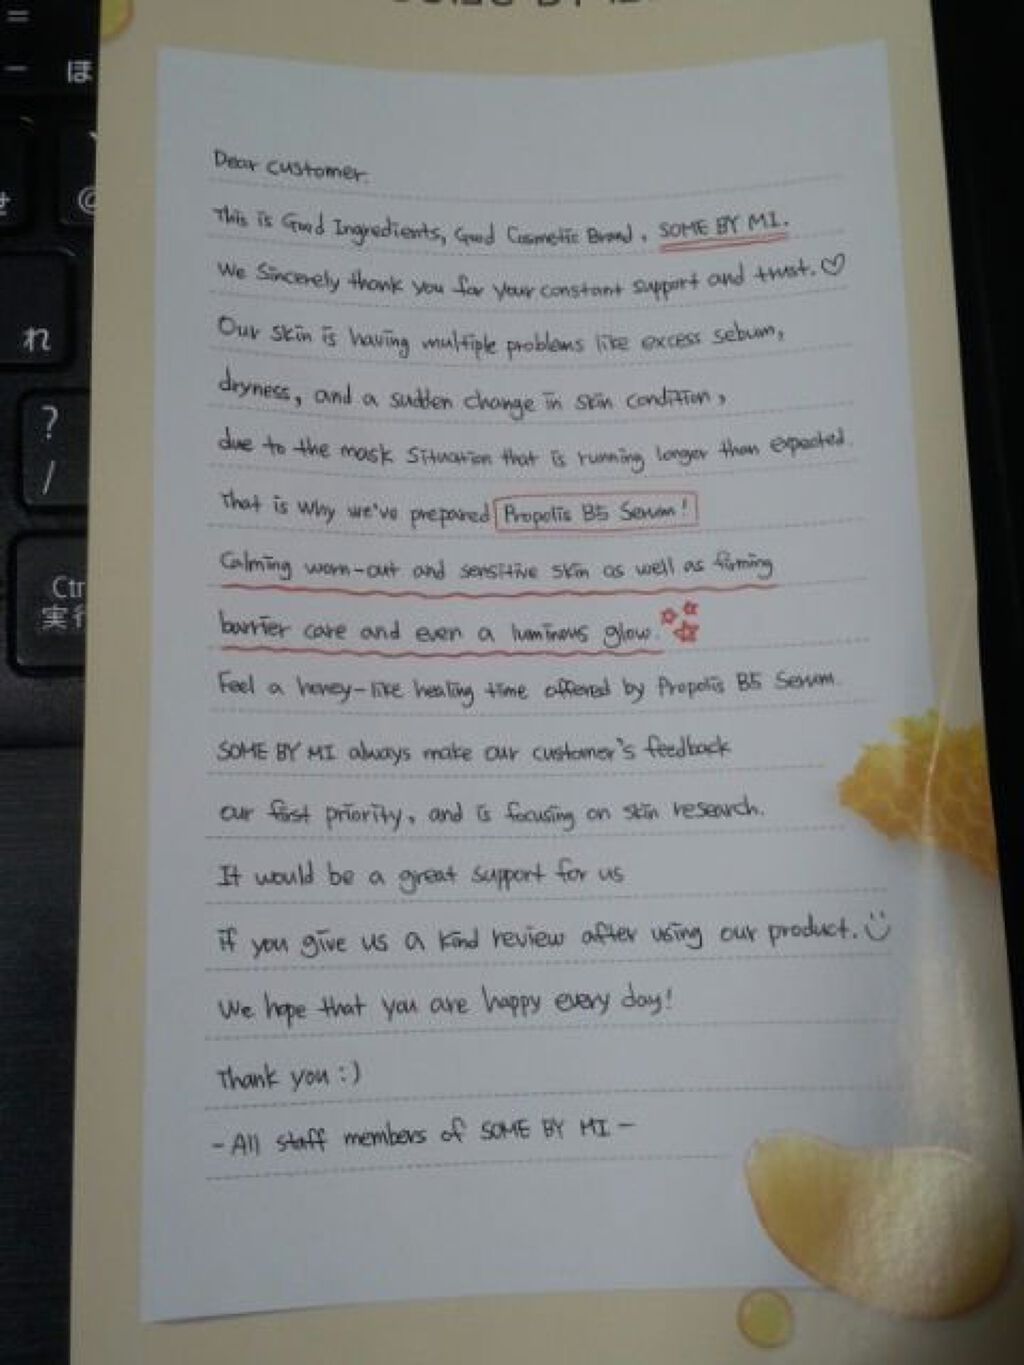 =
ー ほ
@
せ
れ
?
/
Ctr
実行
Dear customer.
This is Good Ingredients, Good Cosmetic Brand, SOME BY MI.
We sincerely thank you for your constant support and trust.♡
Our skin is having multiple problems like excess sebum,
dryness, and a sudden change in skin condition,
due to the mask situation that is running longer than expected.
That is why we've prepared Propolis B5 Serum!
Calming worn-out and sensitive skin as well as firming
barrier care and even a luminous glow.
Feel a honey-like healing time offered by Propolis B5 Serum.
SOME BY MI always make our customer's feedback
our first priority, and is focusing on skin research.
It would be a great support for us
if you give us a kind review after using our product.
We hope that you are happy every day!
Thank you :)
- All staff members of SOME BY MI -